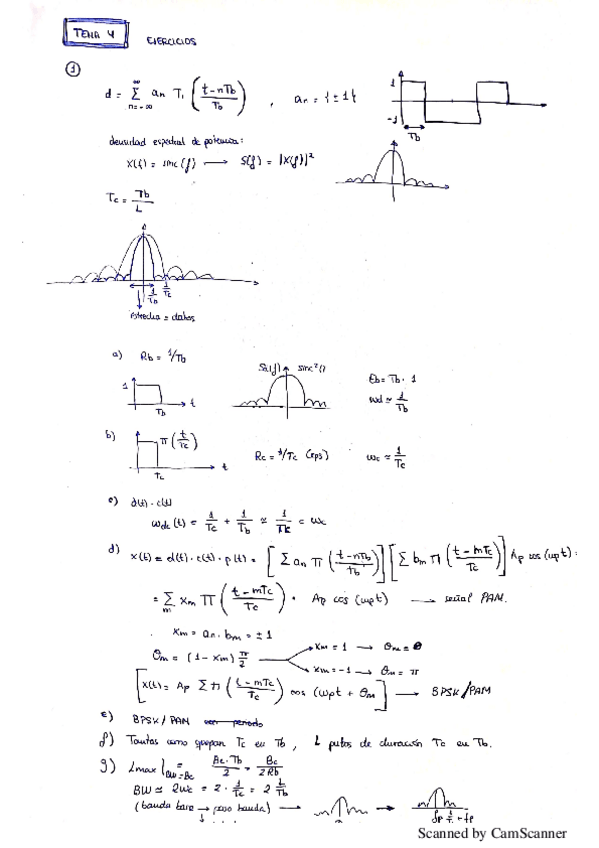 TEMA 4
EJERCICIOS
①
d = Σ_{n=-∞}^{∞} an Π ( (t-nTb)/Tb ) , an = {±1}
1
-1
Tb
densidad espectral de potencia:
X(f) = sinc(f) ⟶ S(f) = |X(f)|²
Tc = Tb/L
1/Tb 1/Tc
estrecha = datos
a) Rb = 1/Tb
1
Tb
t
Sd(f) sinc²()
Eb = Tb · 1
wd ≃ 1/Tb
b)
Π (t/Tc)
Tc
t
Rc = 1/Tc (cps)
wc ≃ 1/Tc
c) d(t) · c(t)
wdc (t) = 1/Tc + 1/Tb ≃ 1/Tc = wc
d) x(t) = d(t) · c(t) · p(t) = [ Σ an Π ( (t-nTb)/Tb ) ] [ Σ bm Π ( (t-mTc)/Tc ) ] Ap cos (wpt) =
= Σ_m xm Π ( (t-mTc)/Tc ) · Ap cos (wpt) ⟶ señal PAM.
xm = an · bm = ±1
θm = (1 - xm) π/2
xm = 1 ⟶ θm = 0
xm = -1 ⟶ θm = π
[ x(t) = Ap Σ Π ( (t-mTc)/Tc ) cos (wpt + θm) ] ⟶ BPSK/PAM
e) BPSK / PAM
f) Tantas como quepan Tc en Tb, L pulsos de duración Tc en Tb.
g) Lmax |_{BW=Bc} = Bc·Tb/2 = Bc/2Rb
BW ≃ 2wc = 2 · 1/Tc = 2 L/Tb
(banda base → paso banda) ⟶ ⟶
Scanned by CamScanner